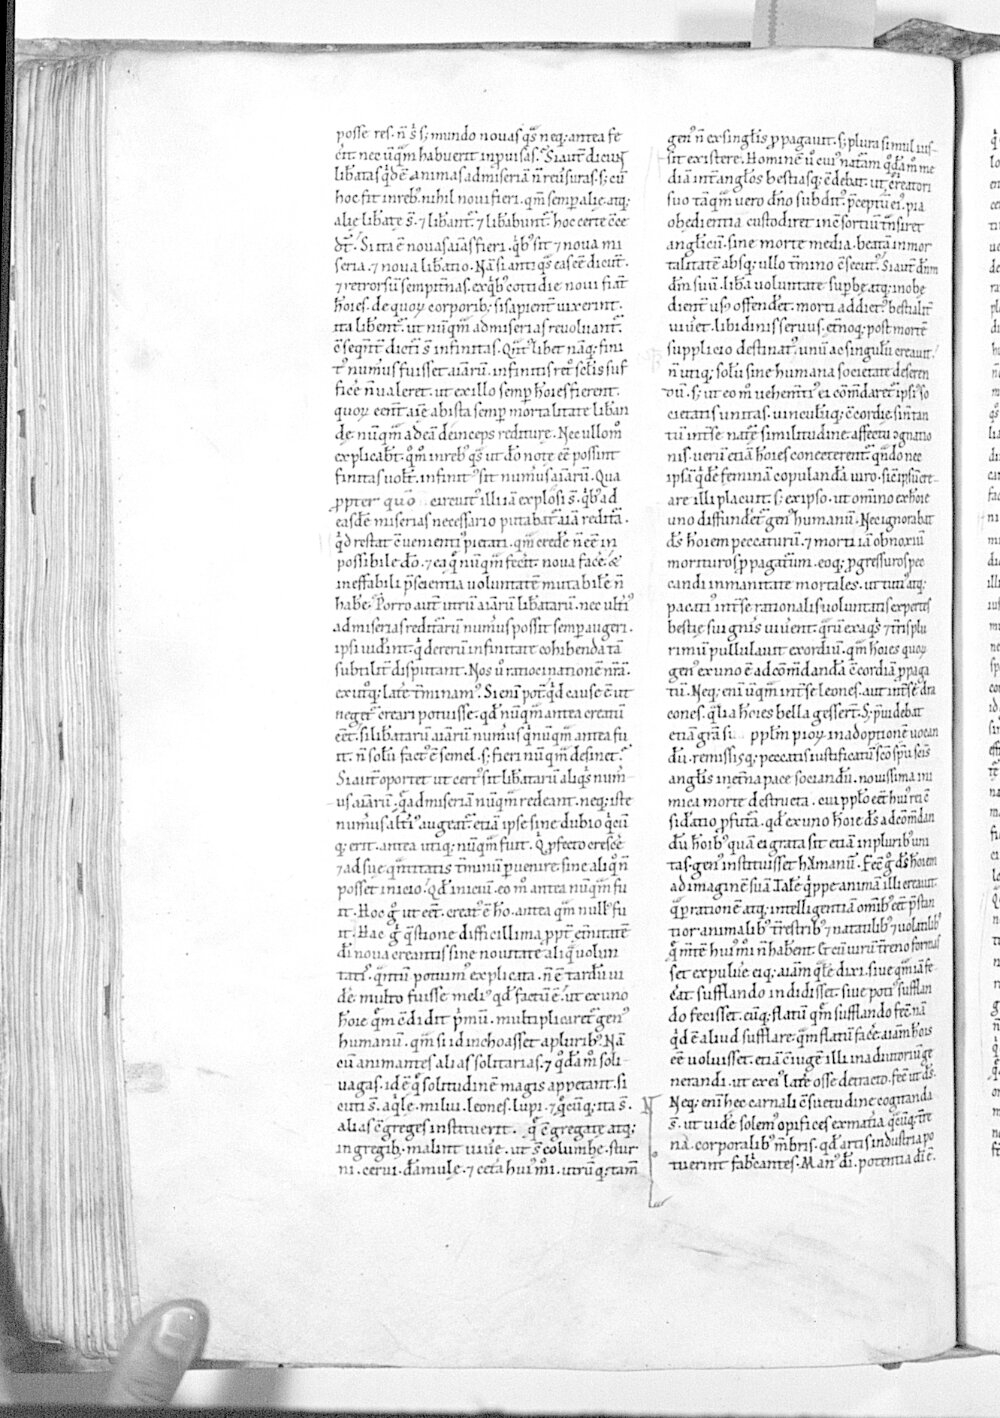 posse res. n̄ s̄ s; mundo nouas q̄s neq; antea fe
cit. nec ūq̄m habuerit inprouisas. Si aut̄ dicunt
lib̄atas q̄dē animas ad miseriā n̄ reūsuras. s; cū
hoc fit in reb; nihil noui fieri. qm̄ semp̄ alie atq;
alie lib̄ate s̄. ⁊ lib̄ant̄. ⁊ lib̄abunt̄. hoc certe c̄ce
dt̄. Si ita ē nouas aīas fieri. q̄b; sit ⁊ noua mi
seria. ⁊ noua lib̄atio. Nā si antiq̄s eas eē dicūt.
⁊ retrorsū sempit̄nas. ex q̄b; cottidie noui fiāt
hoīes. de quoꝝ corporib; si sapient̄ uixerint.
ita lib̄ent̄. ut nūq̄m ad miserias reuoluant̄.
c̄seq̄nt̄ dicturi s̄ infinitas. Q̄nt; libet nāq; fini
t; num̄us fuisset aīarū. infinitis ret̄ sc̄lis suf
ficē n̄ ualeret. ut ex illo semp̄ hoīes fierent.
quoꝝ eent̄ aīe ab ista semp̄ mortalitate lib̄an
de. nūq̄m ad eā deinceps rediture. Nec ullo m̊
explicabt̄. q̊m̊ in reb; q̄s ut d̄o note eē possint
finitas uolt̄. infinit; sit num̄us aīarū. Qua
ꝓpter quo circuit; illi iā explosi s̄. q̄b; ad
easdē miserias necessario putabat̄ aīā reditā.
q̄d restat c̄uenienti; pietati. qm̄ credē n̄ eē in
possibile d̄o. ⁊ ea q̄ nūq̄m fecit. noua facē. &
ineffabili p̄scientia uoluntatē mutabilē n̄
habē. Porro aut̄ utrū aīarū lib̄atarū. nec ult̄i;
ad miserias reditārū num̄us possit semp̄ augeri.
ipsi uid̄int. q̄ de rerū infinitate cohibenda tā
subtilit̄ disputant. Nos ū ratiocinationē n̄rā.
ex utq; lat̄e t̄minam;. Si eni pot̄. q̄d cause ē ut
neget̄ creari potuisse. qd̄ nūq̄m antea creatū
eēt. si lib̄atarū aīarū num̄us q̄ nūq̄m antea fu
it. n̄ solū fact; ē semel. s; fieri nūq̄m desinet.
Si aut̄ oportet ut cert; sit lib̄atarū aliq̄s num
us aīarū. q̄ ad miseriā nūq̄m redeant. neq; iste
num̄us alti; augeat̄. etiā ipse sine dubio q̄cū
q; erit. antea utiq; nūq̄m fuit. Q̄ ꝓfecto crescē
⁊ ad sue q̄ntitatis t̄minū p̄uenire. sine aliq̊ n̄
posset inicio. Q̊d iniciū. eo m̊ antea nūq̄m fu
it. Hoc g̊ ut eēt. creat; ē h̄o. antea qm̄ null; fu
it. Hac g̊ q̄stione difficillima ꝓpt̄ et̄nitatē
d̄i noua creantis sine nouitate aliq̊ uolun
tatis. q̄ntū potuim; explicata. n̄ ē tardū ui
dē. multo fuisse meli; qd̄ factū ē. ut ex uno
hoīe q̄m c̄didit p̄mū. multiplicaret̄ gen;
humanū. qm̄ si id inchoasset a plurib;. Nā
cū animantes alias solitarias. ⁊ q̊dā m̊ soli
uagas. id ē q̄ solitudinē magis appetant. si
cuti s̄. aq̄le. milui. leones. lupi. ⁊ q̄cūq; ita s̄.
alias c̄greges instituerit. q̄ c̄gregate atq;
in gregib; malint uiuē. ut s̄ columbe. stur
ni. cerui. dāmule. ⁊ cet̄a hui; m̊i. utrūq; tam̄
gen; n̄ ex singlis ꝓpagauit. s; plura simul ius
sit existere. Hominē ū cui; nat̄am q̊dam m̊ me
diā int̄ anglos bestiasq; c̄debat. ut si creatori
suo tāq̄m uero dn̄o subdit; p̄ceptū ei; pia
obedientia custodiret in c̄sortiū t̄nsiret
anglicū. sine morte media. beatā inmor
talitatē absq; ullo t̄mino c̄secut;. Si aut̄ dn̄m
d̄m suū. lib̄a uoluntate supbe atq; inobe
dient̄ us; offendet̄. morti addict; bestialit̄
uiuet̄. libidinis seruus. et̄noq; post mortē
supplicio destinat;. unū ac singulū creauit.
n̄ utiq; solū sine humana societate deseren
dū. s; ut eo m̊ uehem̄ti; ei c̄m̄daret̄ ipsi; so
cietatis unitas. uinculūq; c̄cordie. si n̄ tan
tū int̄ se nat̄e similitudine. affectu c̄gnatio
nis. uerū etiā hoīes c̄necterent̄. q̄ndo nec
ipsā q̄dē feminā copulandā uiro. sic̄ ipsū cre
are illi placuit. s; ex ipso. ut om̄ino ex hoīe
uno diffundet̄ gen; humanū. Nec ignorabat
d̄s hoīem peccaturū. ⁊ morti iā obnoxiū
morituros ꝓpagatum. eoq; ꝓgressuros pec
candi inmanitate mortales. ut tuti; atq;
pacati; int̄ se rationalis uoluntatis expertes
bestie sui gn̄is uiuerent. q̄rū ex aq̄s ⁊ t̄ris plu
rimū pullulauit exordiū. qm̄ hoīes quoꝝ
gen; ex uno ē ad com̄dandā c̄cordiā ꝓpaga
tū. Neq; eni ūq̄m int̄ se leones. aut int̄ se dra
cones. q̄lia hoīes bella gesserūt. S; p̄uidebat
etiā grā sua pplm̄ pioꝝ in adoptionē uocan
dū. remissisq; peccatis iustificatū sc̄o sp̄u scīs
anglis in et̄na pace sociandū. nouissima ini
mica morte destructa. cui pplo eēt hui; rei c̄
sid̄atio ꝓfut̄a. qd̄ ex uno hoīe d̄s ad c̄m̄dan
dū hoīb; quā ei grata sit etiā in plurib; uni
tas. gen; instituisset humanū. Fec̄ g̊ d̄s hoīem
ad imaginē suā. Talē q̄ppe animā illi creauit.
q̄ p̄ rationē atq; intelligentiā om̄ib; eēt p̄stan
tior animalib; t̄restrib; ⁊ natatilib; ⁊ uolatilib;
q̄ m̄tē hui; m̊i n̄ habent. Et cū uirū t̄reno formas
set expuluē. eiq; aīam q̄lē dixi. siue q̄m iā fe
c̄at. sufflando indidisset. siue poti; sufflan
do fecisset. eūq; flatū q̄m sufflando fec̄ nā
q̄d ē aliud sufflare. q̄m flatū facē. aīam hoīs
eē uoluisset. etiā c̄iugē illi in adiutoriū ge
nerandi. ut ex ei; latē osse detracto. fec̄ ut d̄s.
Neq; eni hec carnali c̄suetudine cogitanda
s̄. ut uidē solem; opifices ex mat̄ia q̄cūq; t̄re
na. corporalib; m̄bris. qd̄ artis industria po
tuerint fab̄cantes. Man; d̄i. potentia d̄i ē.